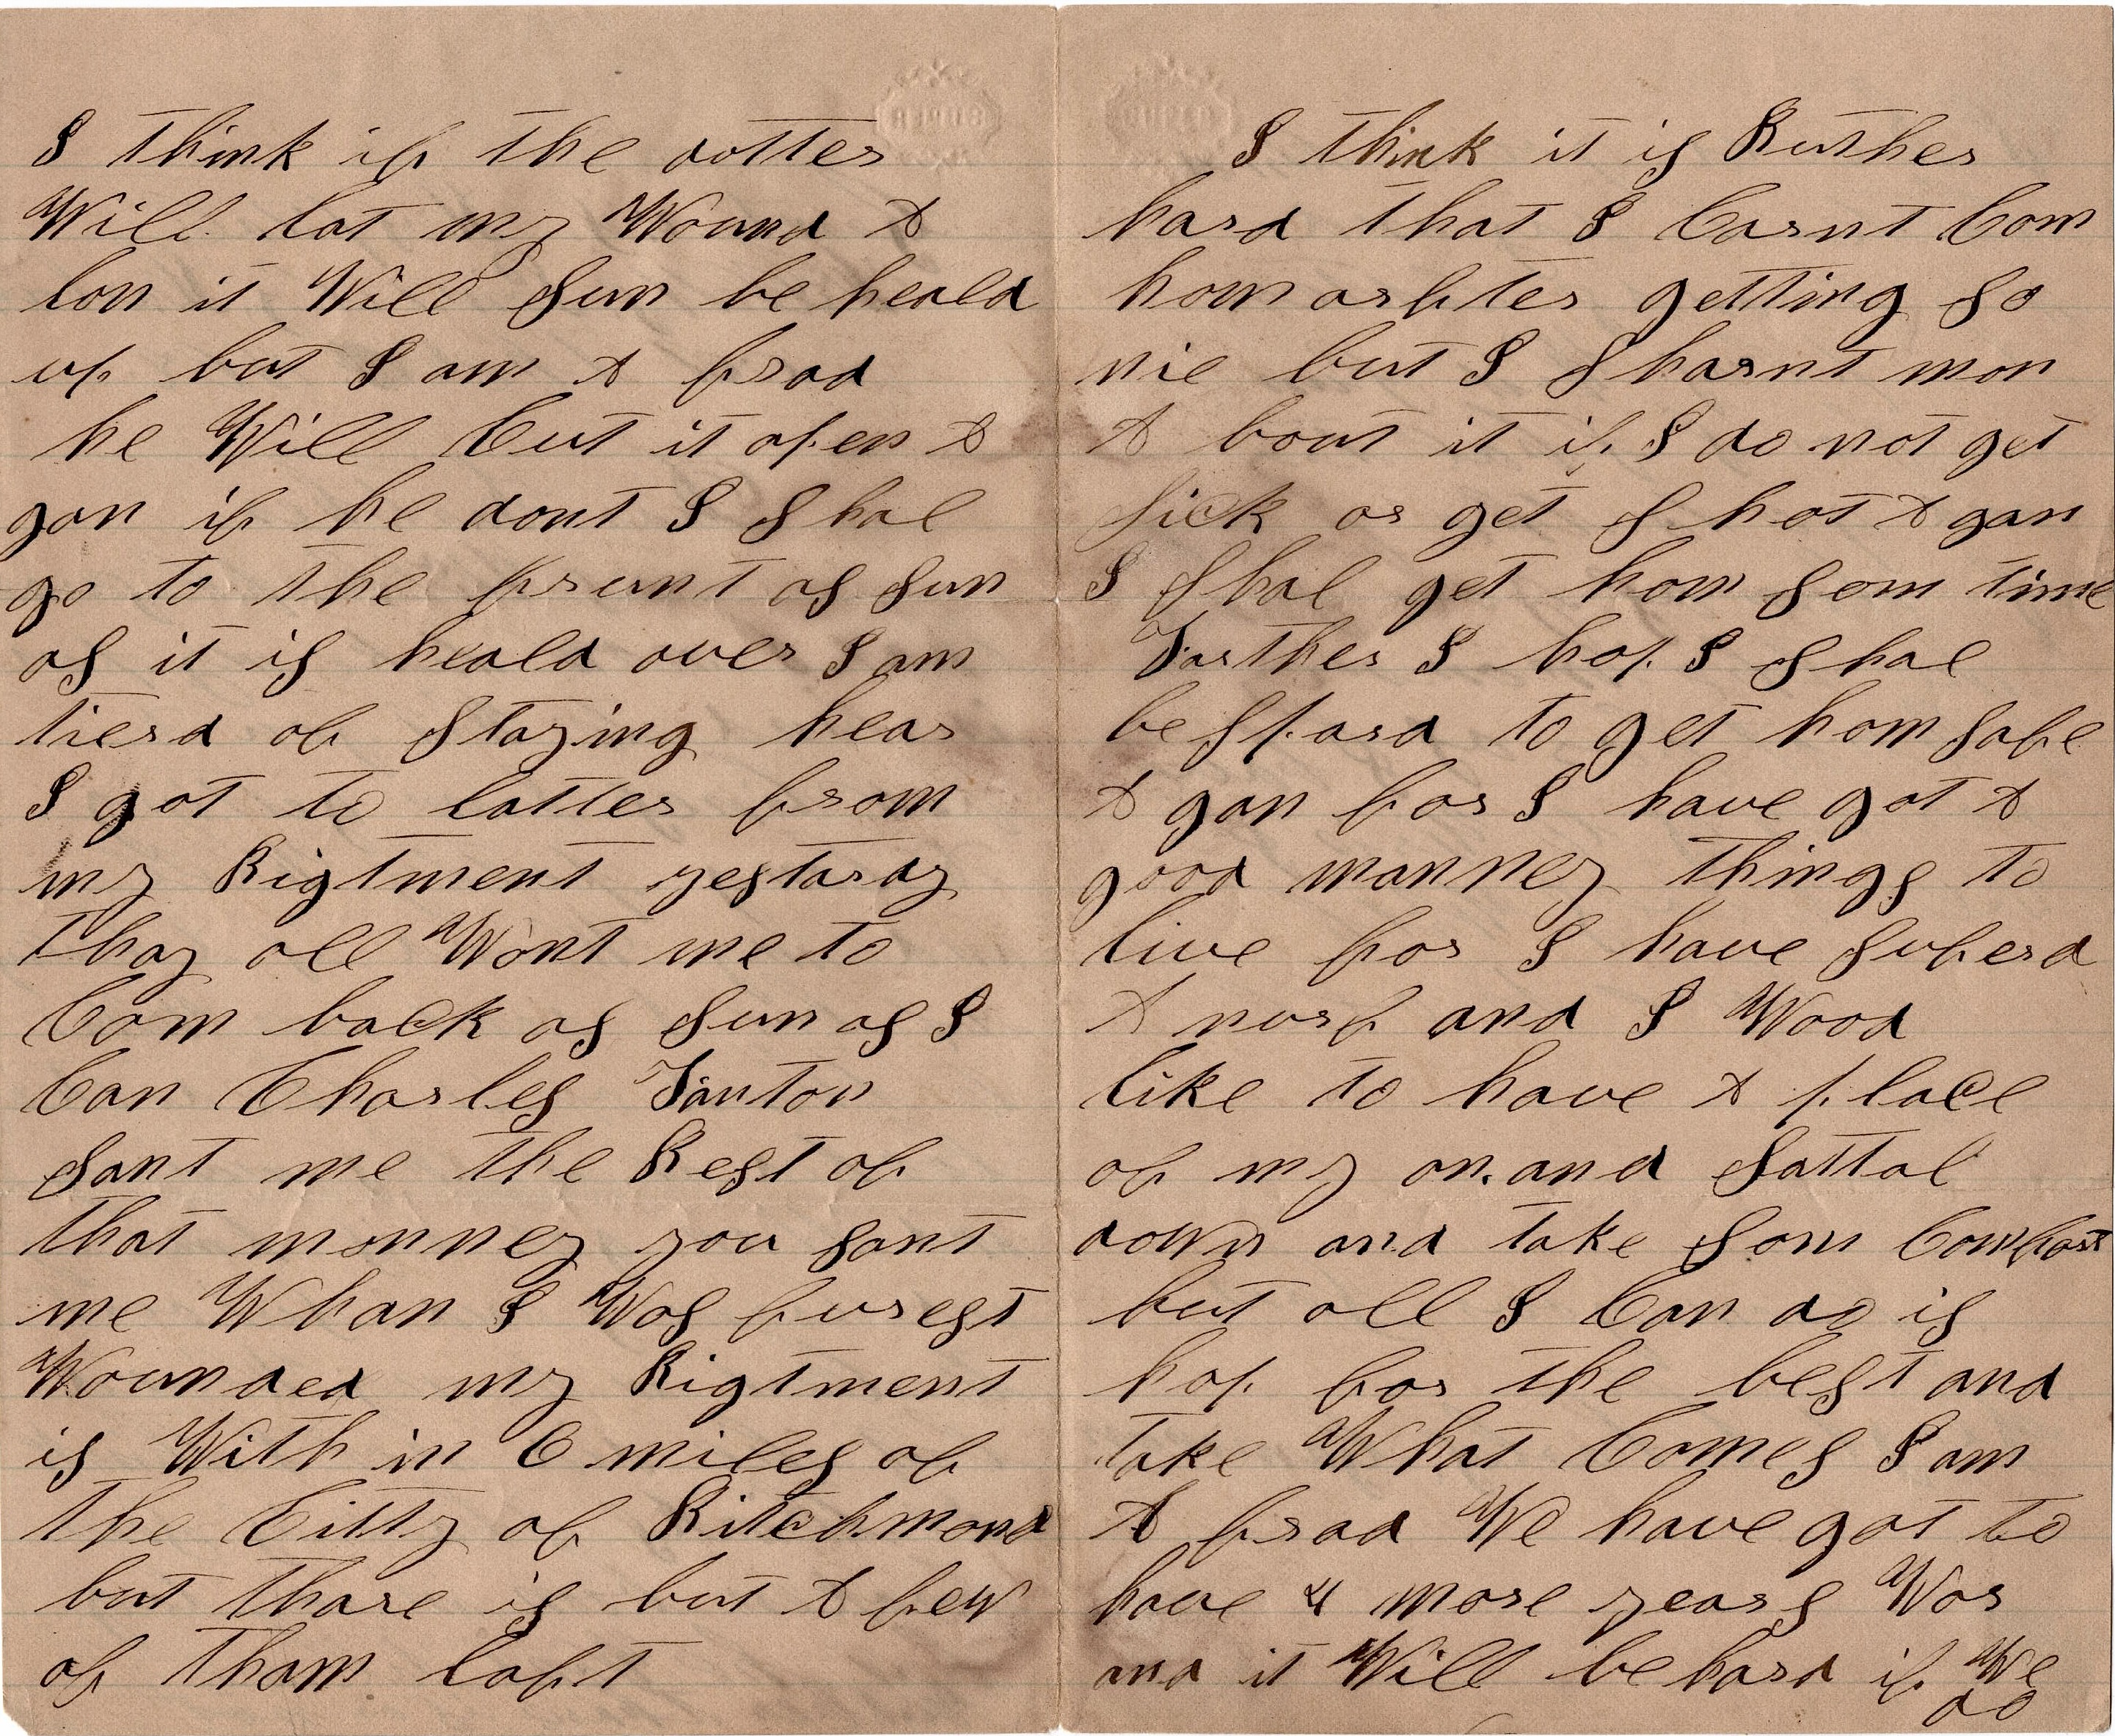 I think if the ootter
Will lat my Wound A
lon it Will Sun be heald
up but I am A frad
he Will Cut it open A
gan if he dont I Shal
go to the frunt as Sun
as it is heald over I am
tierd of Staying hear
I got to latter from
my Rigtment yestarday
thay all Wont me to
Com back as Sun as I
Can Charles Tanton
Sant me the Rest of
that monney you sant
me Whan I Was furest
Wounded my Rigtment
is With in 6 miles of
the Citty of Ritchmond
but thare is but A few
of tham laft
I think it is Ruther
hard that I Carnt Com
hom arfter getting So
nie but I Sharnt mon
A bout it if I do not get
Sick or get Shot A gan
I Shal get hom Som time
Farther I hop I Shal
be Spard to get hom safe
A gan for I have got A
good manney things to
live for I have Suferd
A nuf and I Wood
like to have A place
of my on. and Sattal
down and take Som Comfort
but all I Can do is
hop for the best and
take What Comes I am
A frad We have got to
have 4 more years War
and it Will be hard if We
do